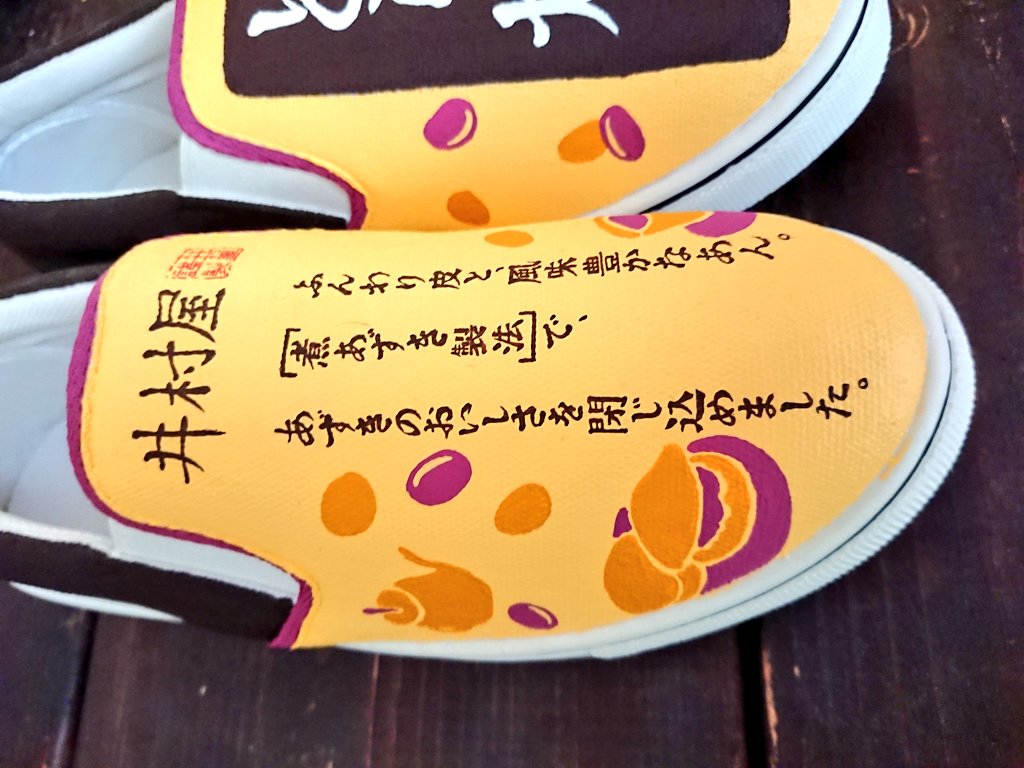 井村屋
ふんわり皮と、風味豊かなあん。
[煮あずき製法]で、
あずきのおいしさを閉じ込めました。